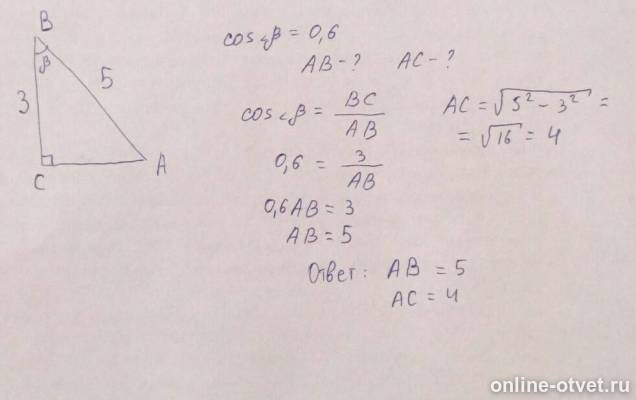 B
β
5
3
C
A
cos∠β = 0,6
AB - ? AC - ?
cos∠β = BC / AB
0,6 = 3 / AB
0,6AB = 3
AB = 5
AC = √(5² - 3²) =
= √16 = 4
Ответ: AB = 5
AC = 4
online-otvet.ru